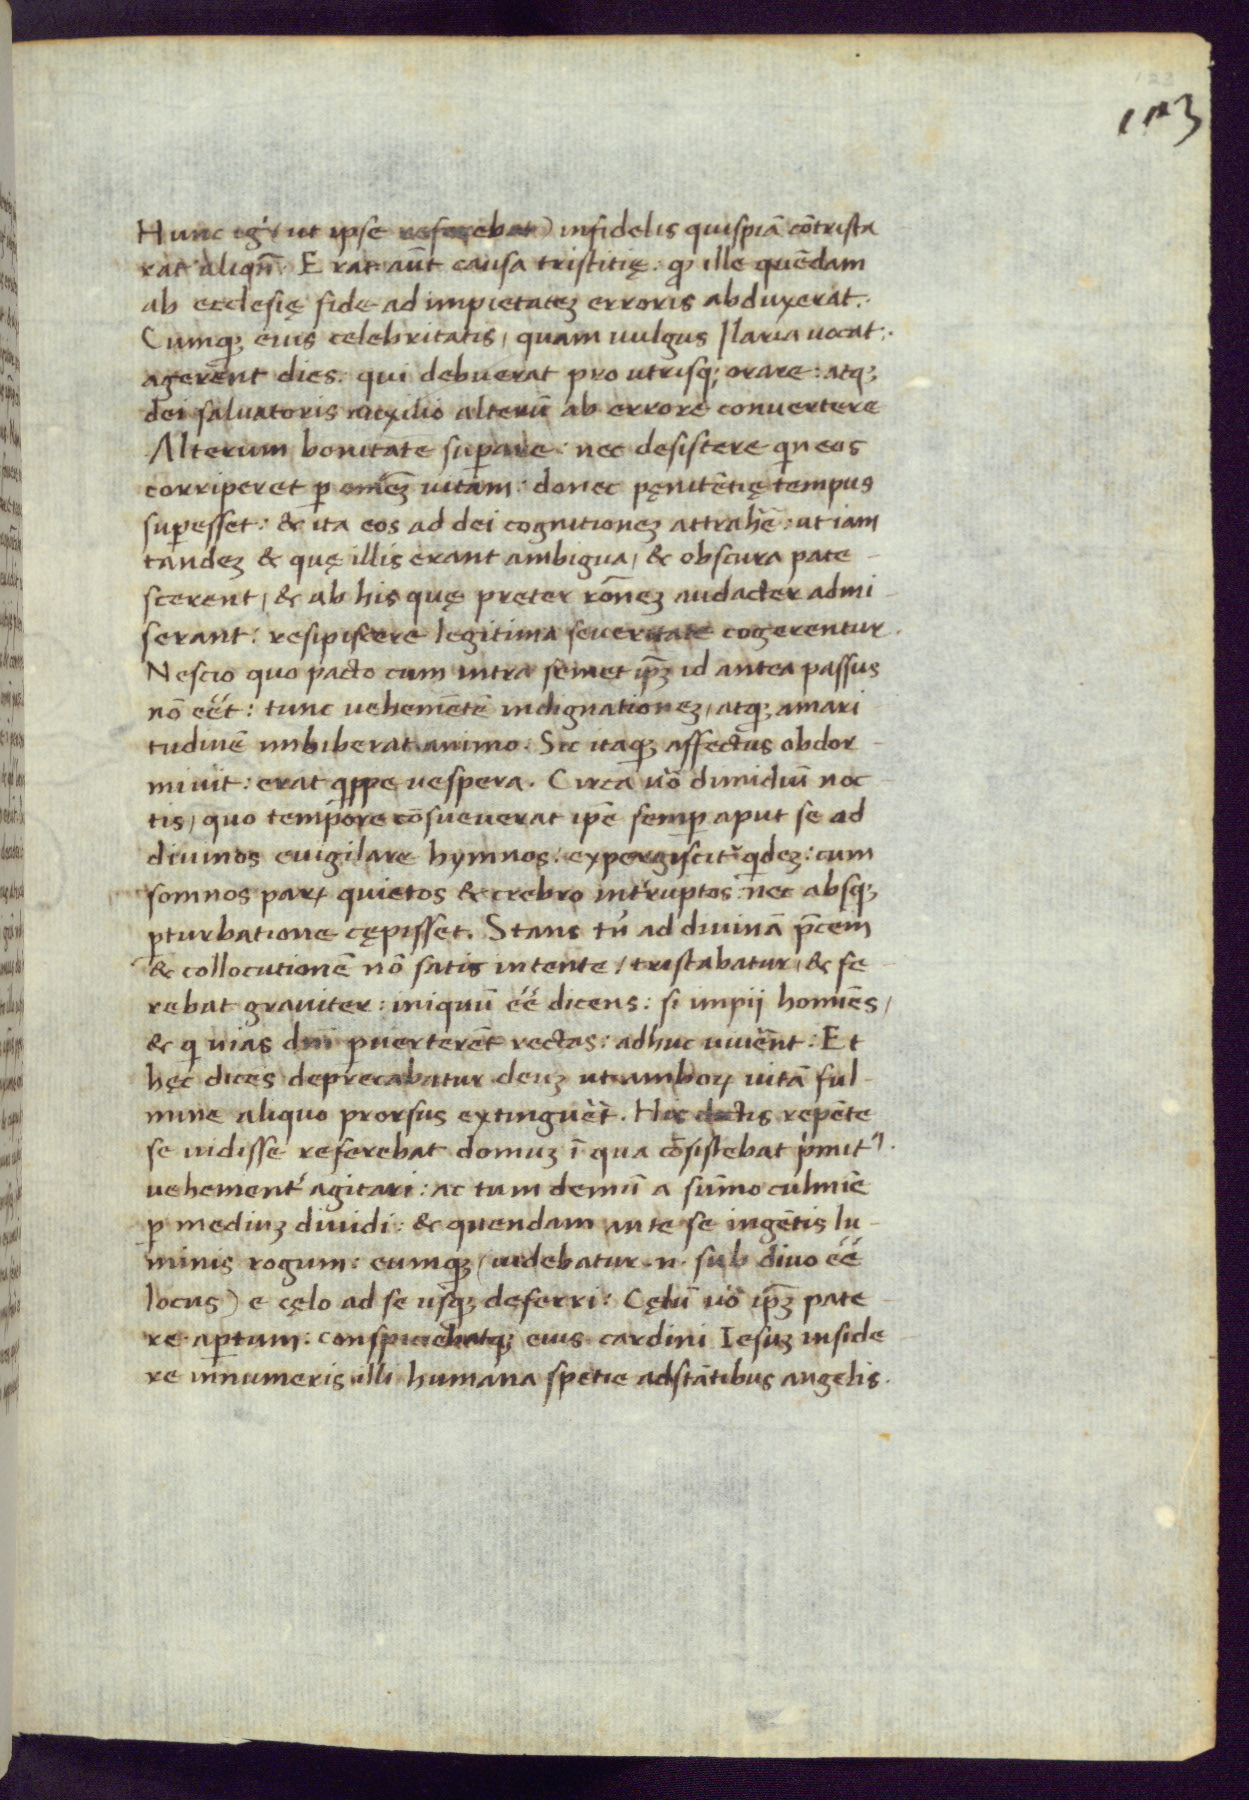 123
113
Hunc igr̃ (ut ipse referebat) infidelis quispiã cõtrista
rat aliqñ. Erat aũt causa tristitię: ꝙ ille quẽdam
ab ecclesię fide ad impietateꝫ erroris abduxerat.
Cumqꝫ eius celebritatis, quam uulgus Ilaria uocat.
agerent dies: qui debuerat pro utrisqꝫ orare: atqꝫ
dei saluatoris auxilio alterũ ab errore conuertere
Alterum bonitate suꝑare: nec desistere qͥn eos
corriperet ꝑ om̃eꝫ uitam: donec pęnitẽtię tempus
suꝑesset: & ita eos ad dei cognitioneꝫ attrahẽ: ut iam
tandeꝫ & quę illis erant ambigua, & obscura pate
scerent, & ab his quę preter rõneꝫ audacter admi
serant: resipiscere legitima seueritate cogerentur.
Nescio quo pacto cum intra semet ip̃ꝫ id antea passus
nõ eẽt: tunc uehemẽtẽ indignationeꝫ, atqꝫ amari
tudinẽ imbiberat animo. Sic itaqꝫ affectus obdor
miuit: erat qͥppe uespera. Circa uõ dimidiũ noc
tis, quo tempore cõsueuerat ip̃e semꝑ aput se ad
diuinos euigilare hymnos: expergiscit᷑ qͥdeꝫ: cum
somnos parꝝ quietos & crebro int᷑ruptos nec absqꝫ
ꝑturbatione cępisset. Stans tñ ad diuinã p̃cem
& collocutionẽ nõ satis intente, tristabatur, & fe
rebat grauiter: iniquũ eẽ dicens: si impij homĩes,
& qͥ uias dñi ꝑuerterẽt rectas: adhuc uiuẽnt: Et
hęc dicẽs deprecabatur deuꝫ ut amboꝝ uitã ful
mine aliquo prorsus extinguẽt. His dictis repẽte
se uidisse referebat domuꝫ ĩ qua cõsistebat p̾mit᷑
uehement᷑ agitari: ac tum demũ a sũmo culmĩe
ꝑ mediuꝫ diuidi: & quendam ante se ingẽtis lu
minis rogum: eumqꝫ (uidebatur .n. sub diuo eẽ
locus) e cęlo ad se usqꝫ deferri: Cęlũ uõ ip̃ꝫ pate
re aꝑtum: conspiciebatqꝫ eius cardini Iesuꝫ inside
re innumeris illi humana spetie adstãtibus angelis.